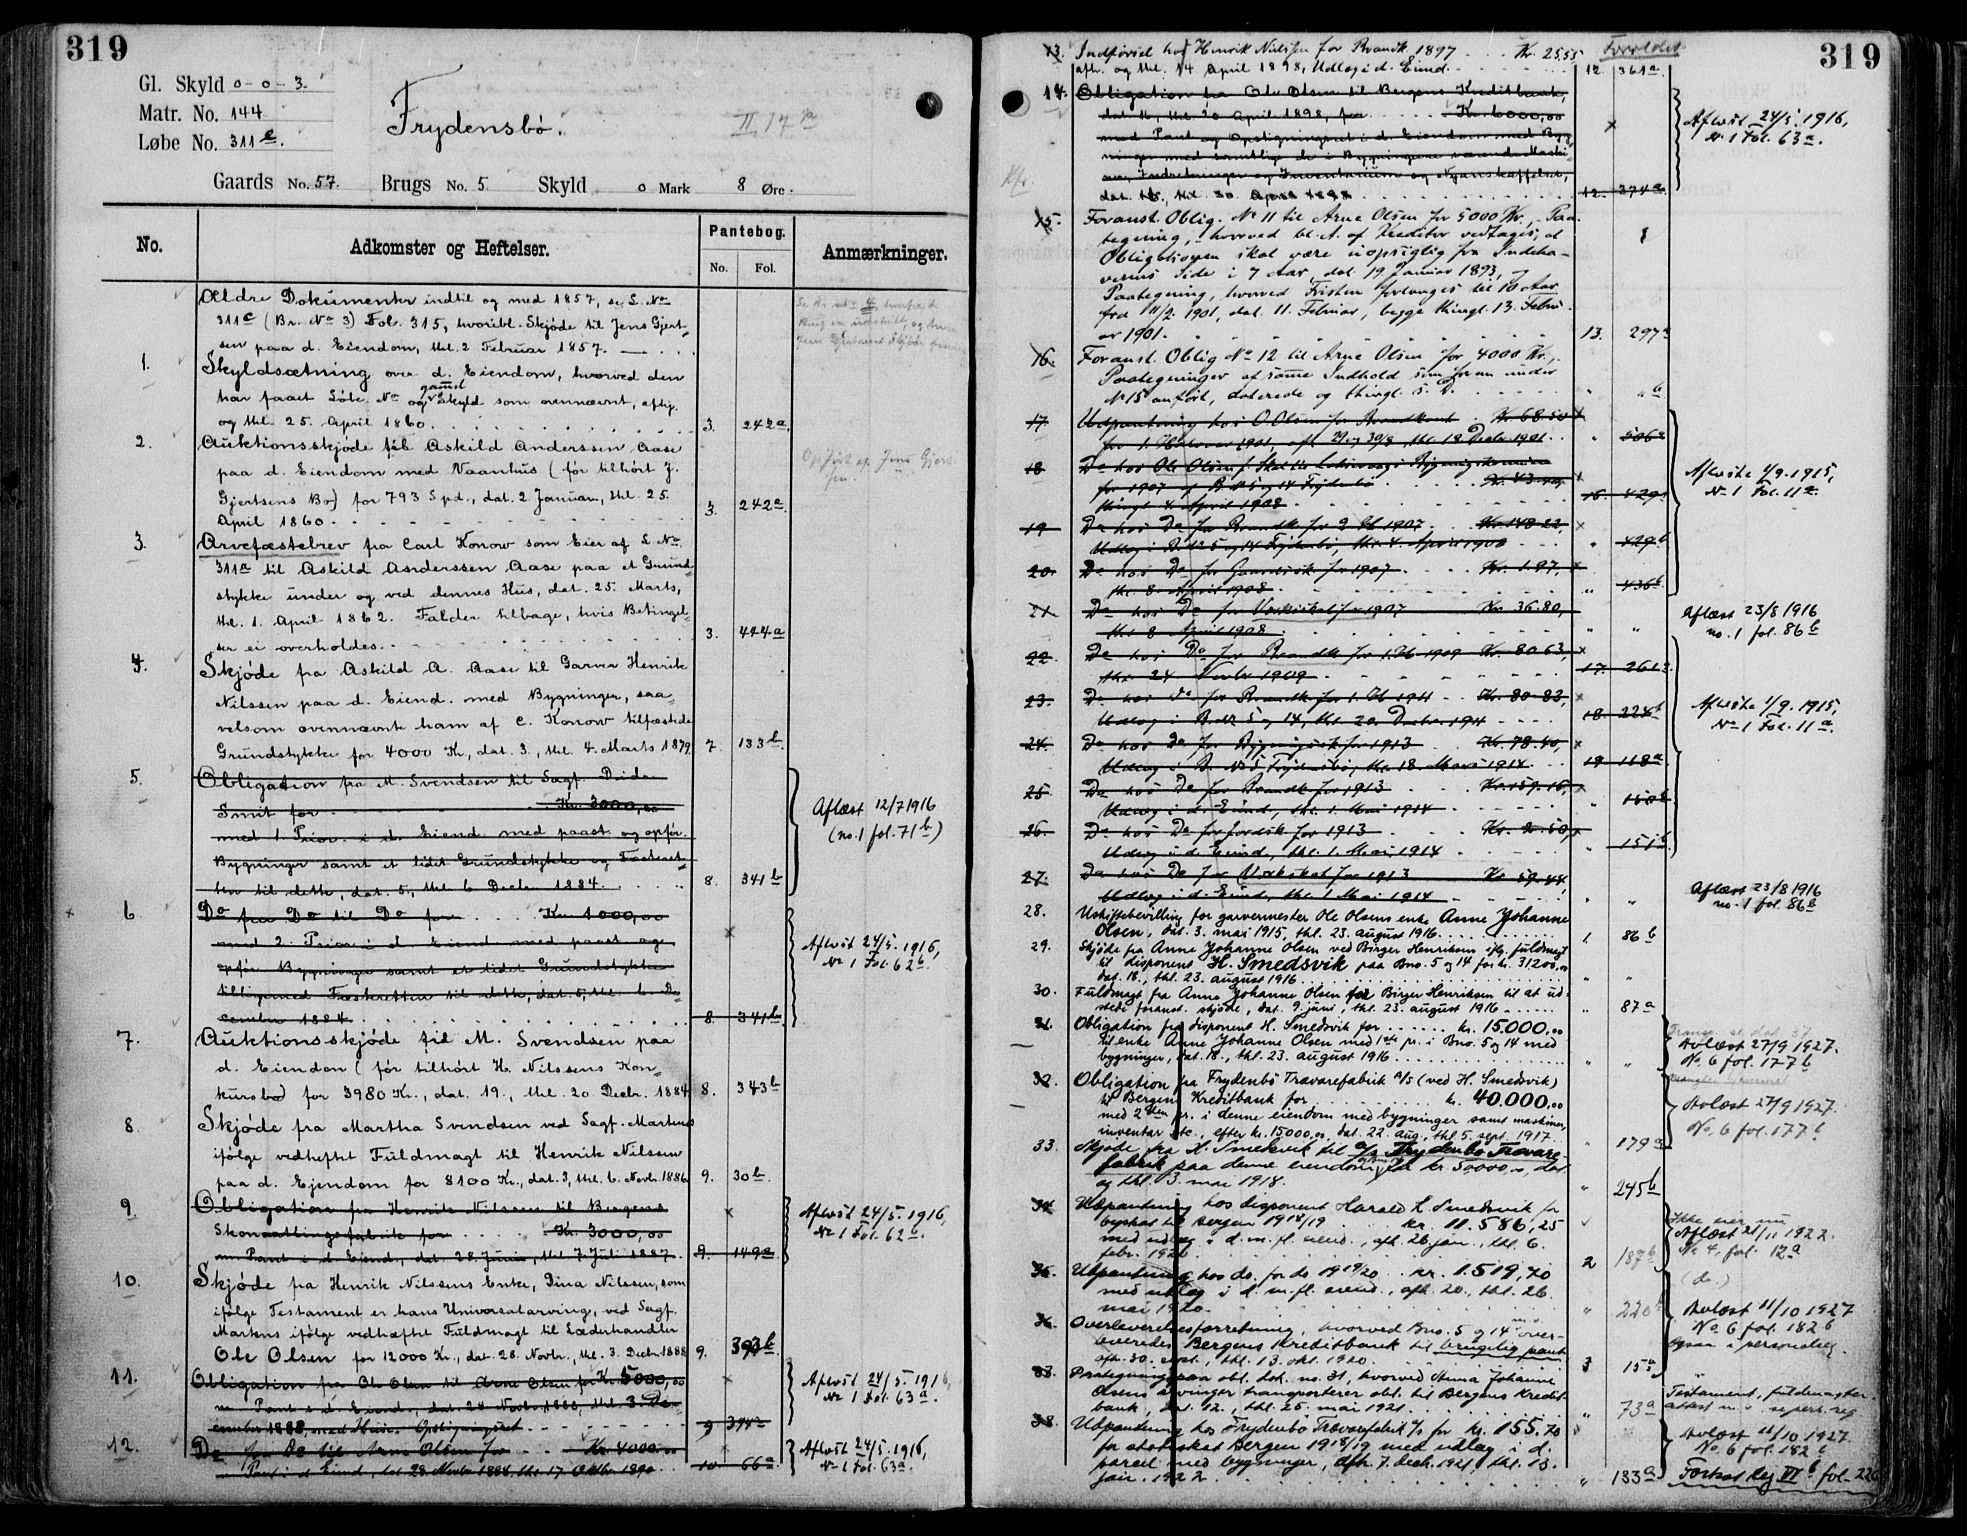 319
Gl. Skyld 0-0-3.
Matr. No. 144
Løbe No. 311 e.
Frydensbø.
II 17 a
Gaards No. 57. Brugs No. 5 Skyld 0 Mark 8 Øre.
No. Adkomster og Heftelser. Pantebog. No. Fol. Anmærkninger.
Ældre Dokumenter indtil og med 1857, se L. No
311 c (Br. No 3) Fol. 315, hvoribl. Skjøde til Jens Gjert-
sen paa d. Eiendom, thl. 2 Februar 1857.
1. Skyldsætning over d. Eiendom, hvorved den
har faaet Løbe No og gaml Skyld som ovennævnt, afhj.
og thl. 25. April 1860. 3. 242a
2. Auktionsskjøde til Askild Anderssen Aase
paa d. Eiendom med Vaanhus (før tilhørt J.
Gjertsens Bo) for 793 Spd., dat. 2 Januar, thl. 25.
April 1860. 3. 242a
3. Arvefæstebrev fra Carl Konow som Eier af L. No
311a til Askild Anderssen Aase paa et Grund-
stykke under og ved dennes Hus, dat. 25. Marts,
thl. 1. April 1862. Falder tilbage, hvis Betingel-
ser ei overholdes. 3. 444a
4. Skjøde fra Askild A. Aase til Garver Henrik
Nilssen paa d. Eiend. med Bygninger, saa-
velsom ovennævnte ham af C. Konow tilfæstede
Grundstykke for 4000 Kr., dat. 3., thl. 4. Marts 1879. 7. 133b
5. Obligation fra M. Svendsen til Sagf. Didr.
Smit for Kr. 3000,00
med 1. Prior. i d. Eiend. med paast. og opfør.
Bygninger samt et lidet Grundstykke og Festeret-
ten til dette, dat. 5, thl. 6 Decbr. 1884. 8. 341b
Aflæst 12/7 1916
(no. 1 fol. 71b)
6. Do fra Do til Do for Kr. 1000,00
med 2. Prior i d. Eiend med paast og
opfør Bygninger samt et lidet Grundstykke
tilligemed Festeretten til dette, dat. 5, thl. 6. De-
cember 1884. 8. 341b
Aflæst 24/5. 1916,
No 1 Fol. 62b.
7. Auktionsskjøde til M. Svendsen paa
d. Eiendom (før tilhørt H. Nilssens Kon-
kursbo) for 3980 Kr., dat. 19., thl. 20. Decbr. 1884. 8. 343b
8. Skjøde fra Martha Svendsen ved Sagf. Martens
ifølge vedheftet Fuldmagt til Henrik Nilssen
paa d. Ejendom for 8100 Kr., dat. 3, thl. 6. Novbr. 1886. 9. 30b
9. Obligation fra Henrik Nilssen til Bergens
Skonnetlingsfabrik for Kr. 3000,00
m Pant i d Eiend., dat. 28 Juni, thl. 7 Juli 1887. 9. 149a
Aflæst 24/5. 1916,
No 1 Fol. 62b.
10. Skjøde fra Henrik Nilssens Enke, Dina Nilssen, som
ifølge Testament er hans Universalarving, ved Sagf.
Martens ifølge vedhæftet Fuldmagt til Læderhandler
Ole Olsen for 12000 Kr., dat. 28. Novbr., thl. 3. Decbr. 1888. 9. 393b
11. Obligation fra Ole Olsen til Arne Olsen for Kr. 5000,00
m Pant i d. Eiend., dat. 28 Novbr. 1888, thl. 3. De-
cember 1888, med Huses Opsigningsret 9 394a
Aflæst 24/5. 1916,
No 1 Fol. 63a.
12. Do fra do til Arne Olsen for Kr. 4000,00
m Pant i d Eiend., dat 28 Novbr 1888, thl. 17 Oktbr. 1890 10. 66a
Aflæst 24/5. 1916,
No 1 Fol. 63a.
319
13. Indførsel hos Henrik Nielsen for Brandk. 1897 Kr. 25,55 Forældet
afh. og thl. 14 April 1898, Udlæg i d. Eiend. 12. 361a
14. Obligation fra Ole Olsen til Bergens Kreditbank,
dat. 16., thl. 20 April 1898, for Kr. 6000,00
med Pant og Opsigningsret i d. Eiendom med Byg-
ninger med samtlige de i Bygningerne værende Maski-
ner, Indretninger og Inventarium og Nyanskaffelser,
dat. 16., thl. 20. April 1898. 12. 374b
Aflæst 24/5. 1916,
No 1 Fol. 63a.
15. Foranst. Oblig. No 11 til Arne Olsen for 5000 Kr., Paa-
tegning, hvorved bl. A. af Kreditor vedtages, at
Obligationen skal være uopsigelig fra Indeha-
verens Side i 7 Aar, dat. 19. Januar 1893, og
Paategning, hvorved Fristen forlænges til 10 Aar
fra 11/2. 1901, dat. 11. Februar, begge thingl. 13. Febru-
ar 1901. 13. 297a
16. Foranst. Oblig No 12 til Arne Olsen for 4000 Kr.,
Paategninger af samme Indhold som foran under
No 15 anført, daterede og thingl. s. D. " " b
17. Udpantning hos O Olsen for Brandkont Kr. 68.50
for 1. Halvaar 1901, afh 29 og 30/8, thl. 18 Decbr 1901. " 506a
18. Do hos Ole Olsen f. Skat til Laksevaags Bygningskommune
for 1907 af B. No 5 og 14 Frydenbø Kr. 43.44,
thingl. 4. April 1908. 16. 429
19. Do hos Do for Brandk. for 2 H 1907. Kr. 148.22,
Udlæg i B. No 5 og 14 Frydenbø, thl. 4. April 1908 " 429b
Aflæste 1/9. 1915,
No 1 Fol. 11a.
20. Do hos Do for Gaardsk. for 1907. Kr. 1.87,
thl. 8. April 1908. " 436b
21. Do hos Do for Veiskat for 1907, Kr. 36.80,
thl. 8 April 1908. " "
Aflæst 23/8 1916
no. 1 fol. 86b
22. Do hos Do for Brandk for 1. H 1909 Kr. 80.63,
thl. 24 Novbr 1909 17. 261a
23. Do hos do for Brandk. for 1. H 1911 Kr. 80.83,
Udlæg i B. No 5 og 14, thl. 20. Decbr 1911 18. 224b
Aflæste 1/9. 1915,
No 1 Fol. 11a.
24. Do hos Do for Bygningssk. for 1913 Kr. 78.40,
Udlæg i B. No 5 Frydensbø, thl. 18. Mars 1914 19 118a
25. Do hos Do for Brandk for 1913 Kr. 159.16,
Udlæg i d. Eiend., thl. 1. Mai 1914 " 150b
26. Do hos Do for Jordsk. for 1913 Kr. 2.50,
Udlæg i d. Eiend., thl. 1. Mai 1914 " 151b
27. Do hos Do for Veiskat for 1913 Kr. 59.44,
Udlæg i d. Eiend., thl. 1. Mai 1914 " "
Aflæst 23/8 1916
no. 1 fol. 86b
28. Uskiftebevilling for garvermester Ole Olsens enke Anne Johanne
Olsen, dat. 3. mai 1915, thl. 23. august 1916. 1. 86b
29. Skjøde fra Anne Johanne Olsen ved Birger Henriksen iflg. fuldmagt
til disponent H. Smedsvik paa Bno. 5 og 14 for kr. 31200,00
dat. 18., thl. 23. august 1916. " "
30. Fuldmagt fra Anne Johanne Olsen for Birger Henriksen til at ud-
stede foranst. skjøde, dat. 9. juni, thl. 23. august 1916 " 87a
31. Obligation fra disponent H. Smedsvik for kr. 15.000,00
til enke Anne Johanne Olsen med 1ste pr. i Bno. 5 og 14 med
bygninger, dat. 18., thl. 23. august 1916 " "
Avlæst 27/9 1927.
No. 6 fol. 177b
32. Obligation fra Frydenbö Trævarefabrik A/S (ved H. Smedsvik)
til Bergens Kreditbank for kr. 40.000,00
med 2den pr. i denne eiendom med bygninger samt maskiner,
inventar etc., efter kr. 15000,00, dat. 22. aug., thl. 5. sept. 1917. " 179a
Avlæst 27/9 1927.
No. 6 fol. 177b
33. Skjøde fra H. Smedsvik til A/S Frydenbø Trævare-
fabrik paa denne eiendom for kr 50000,00, dat
og thl. 3. mai 1918. " 245b
34. Utpantning hos disponent Harald L. Smedsvik for
byskat til Bergen 1918/19 kr. 11.586,25
med utlæg i d. m. fl. eiend., afh. 26 jan., thl. 6.
febr. 1920. 2 187b
Ikke eier nu
Aflæst 21/11 1922.
No 4, fol. 12a
35. Utpantning hos do. for do 1919/20 kr. 1.519,70
med utlæg i d. m. fl. eiend., afh. 20., thl. 26.
mai 1920. " 220b
(do.)
36. Overleverelsesforretning, hvorved Bno. 5 og 14 over-
leveredes Bergens Kreditbank til brugelig pant
afh. 30. sept., thl. 13. okt. 1920. 3 15a
Avlæst 11/10 1927
No. 6 fol. 182b
37. Paategning paa obl. dok. no. 31, hvorved Anna Johanne
Olsens arvinger transporterer obl. til Bergens Kredit-
bank, dat. 12., thl. 25. mai 1921. " 73a
38. Utpantning hos Frydenbö Trævarefabrik A/S for kr. 155,70
for stat skat Bergen 1918/19 med utlæg i d.
parcel med bygninger, afh. 7. decb. 1921, thl. 13.
jan. 1922. " 133a
Avlæst 11/10 1927
No. 6 fol. 182b
Fortsat Reg VI b fol. 226